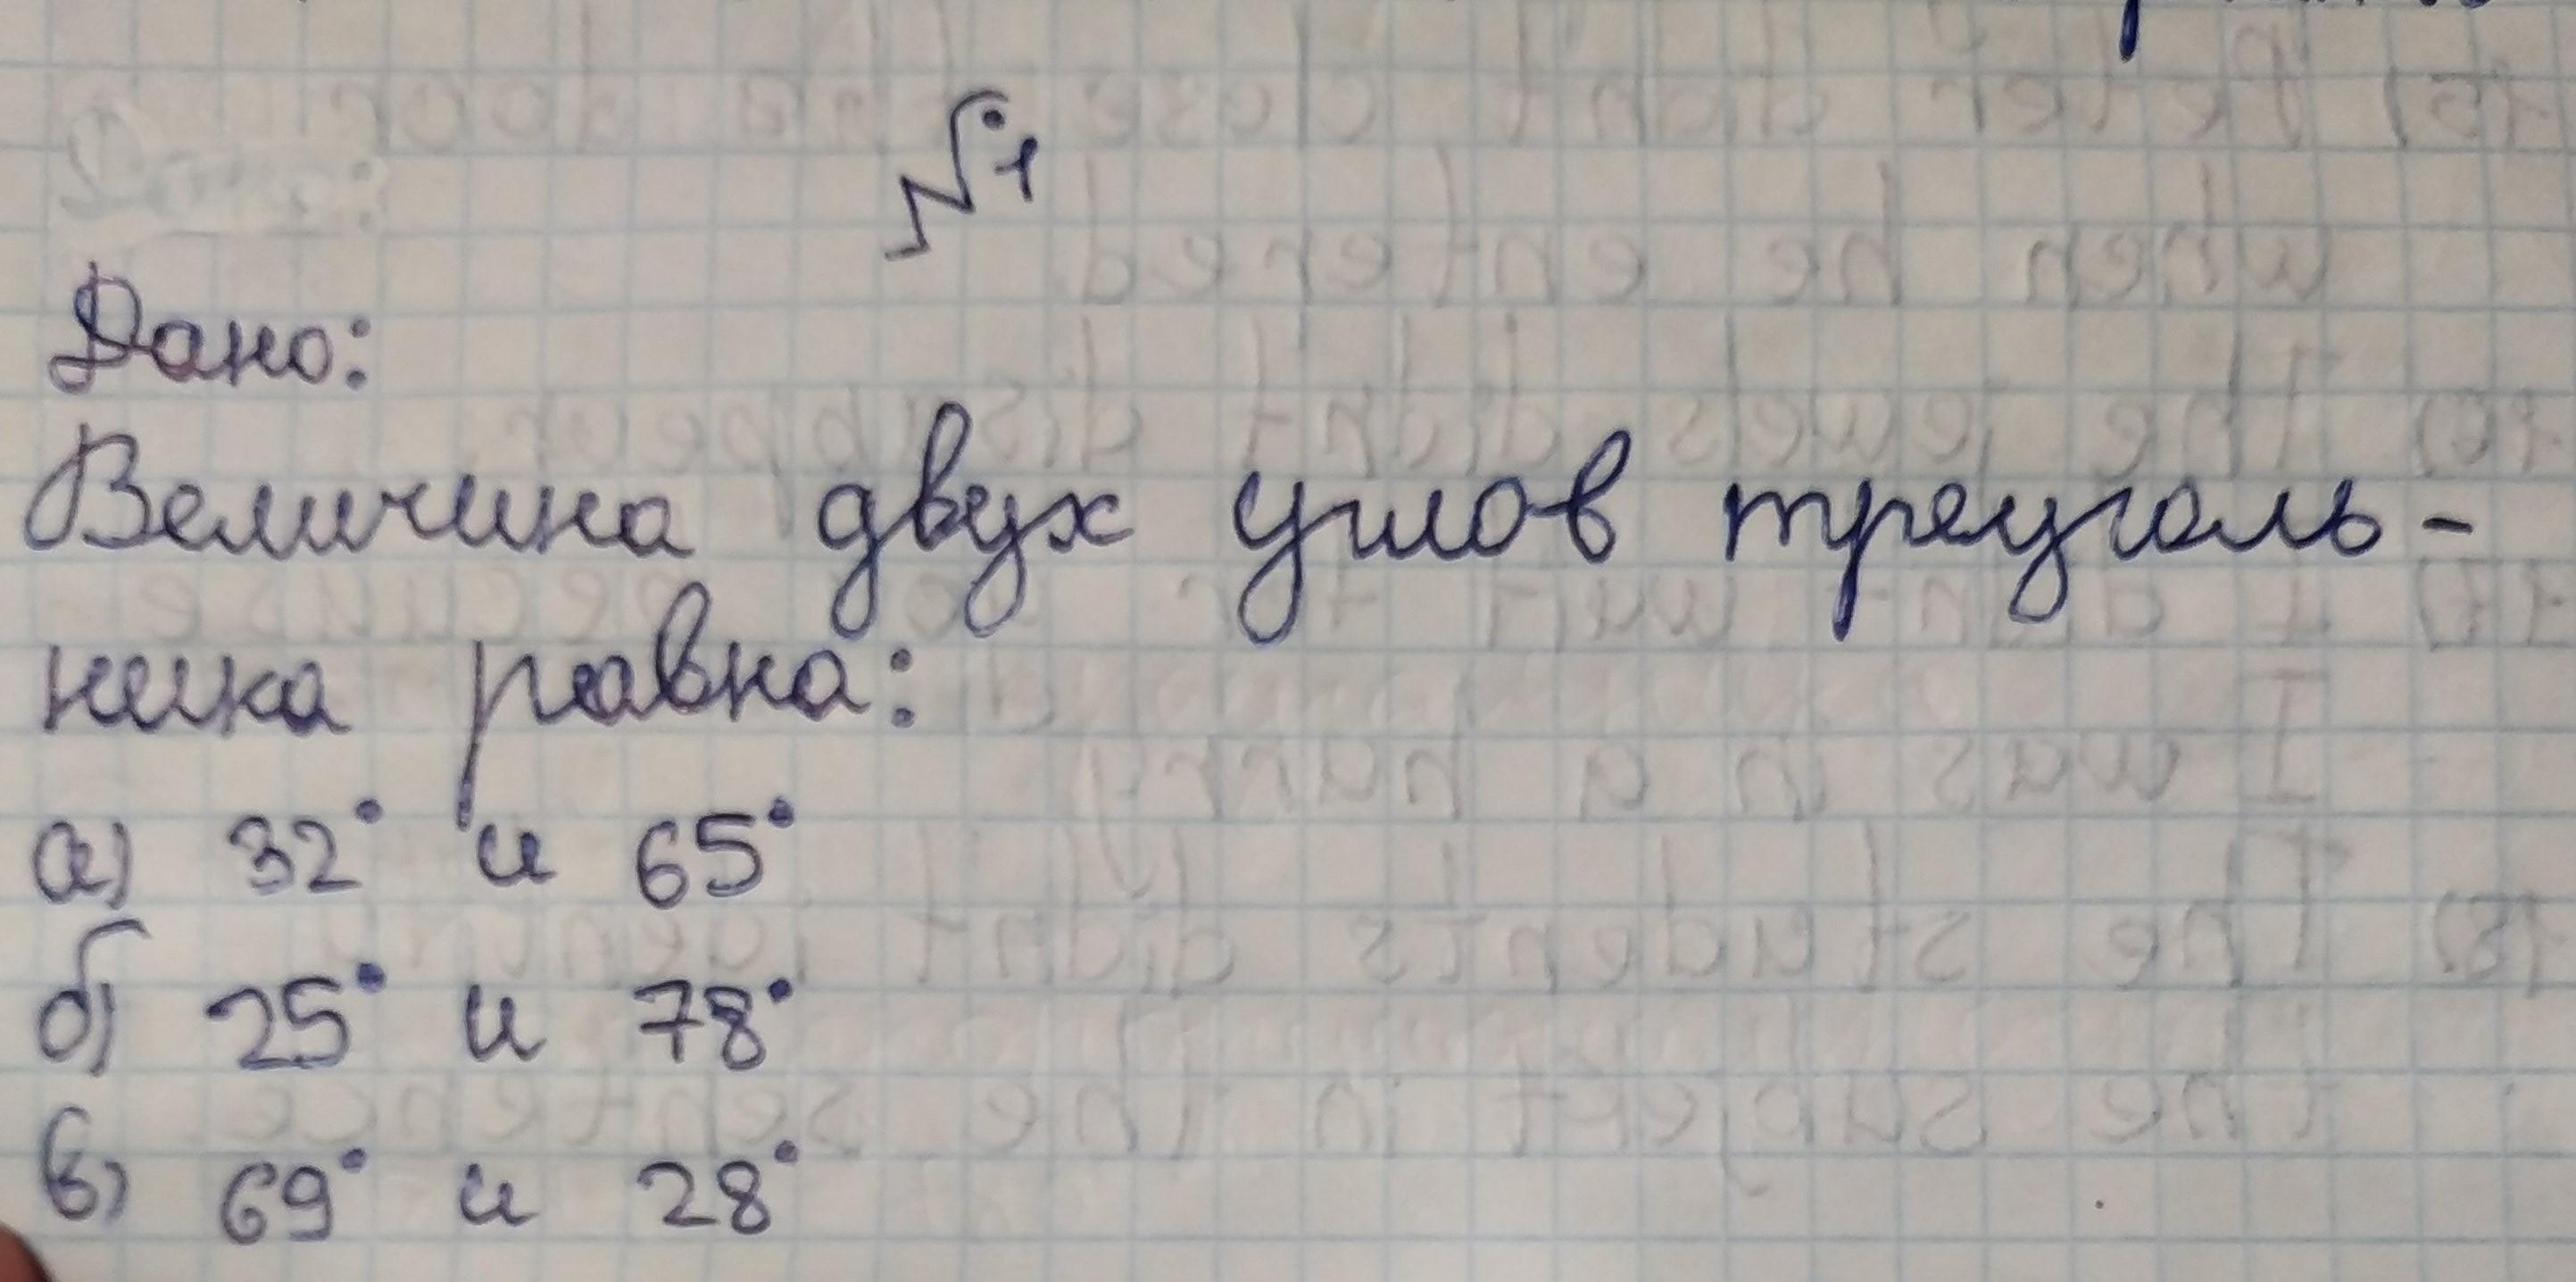 №1
Дано:
Величина двух углов треуголь-
ника равна:
а) 32° и 65°
б) 25° и 78°
в) 69° и 28°